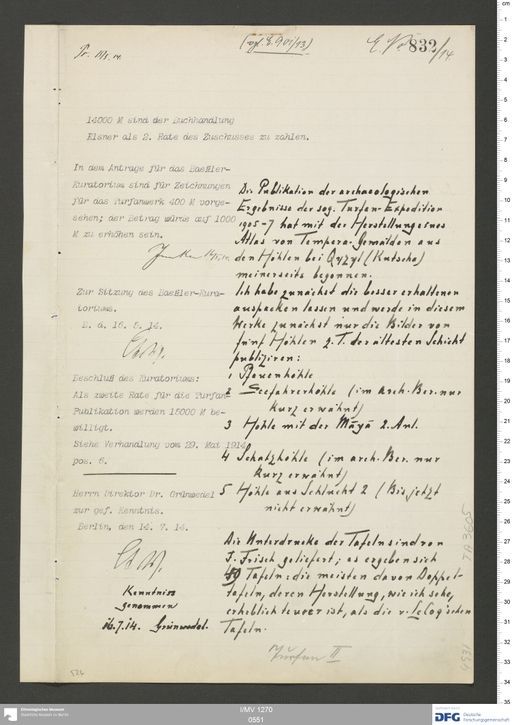 (vgl. E. 901/13)
E. No 832/14
14000 M sind der Buchhandlung
Elsner als 2. Rate des Zuschusses zu zahlen.
In dem Antrage für das Baeßler-
Kuratorium sind für Zeichnungen
für das Turfanwerk 400 M vorge-
sehen; der Betrag würde auf 1000
M zu erhöhen sein.
Zur Sitzung des Baeßler-Kura-
toriums.
B. d. 16. 5. 14.
Beschluß des Kuratoriums:
Als zweite Rate für die Turfan-
Publikation werden 15000 M be-
willigt.
Siehe Verhandlung vom 29. Mai 1914
pos. 6.
Herrn Direktor Dr. Grünwedel
zur gef. Kenntnis.
Berlin, den 14. 7. 14.
Kenntniss
genommen
16.7.14. Grünwedel.
Die Publikation der archaeologischen
Ergebnisse der sog. Turfan-Expedition
1905-7 hat mit der Herstellung eines
Atlas von Tempera-Gemälden aus
den Höhlen bei Qyzyl (Kutscha)
meinerseits begonnen.
Ich habe zunächst die besser erhaltenen
auspacken lassen und werde in diesem
Werke zunächst nur die Bilder von
fünf Höhlen z. T. der ältesten Schicht
publiziren:
1 Pfauenhöhle
2 Seefahrerhöhle (im arch. Ber. nur
kurz erwähnt)
3 Höhle mit der Māyā 2. Anl.
4 Schatzhöhle (im arch. Ber. nur
kurz erwähnt)
5 Höhle aus Schlucht 2 (Bis jetzt
nicht erwähnt)
Die Unterdrucke der Tafeln sind von
J. Frisch geliefert; es ergeben sich
49 Tafeln: die meisten davon Doppel-
tafeln, deren Herstellung, wie ich sehe,
erheblich teuer ist, als die v. leCoq'schen
Tafeln.
Turfan II
TA 3605
526
Ethnologisches Museum
Staatliche Museen zu Berlin
I/MV 1270
0551
DFG
Deutsche
Forschungsgemeinschaft